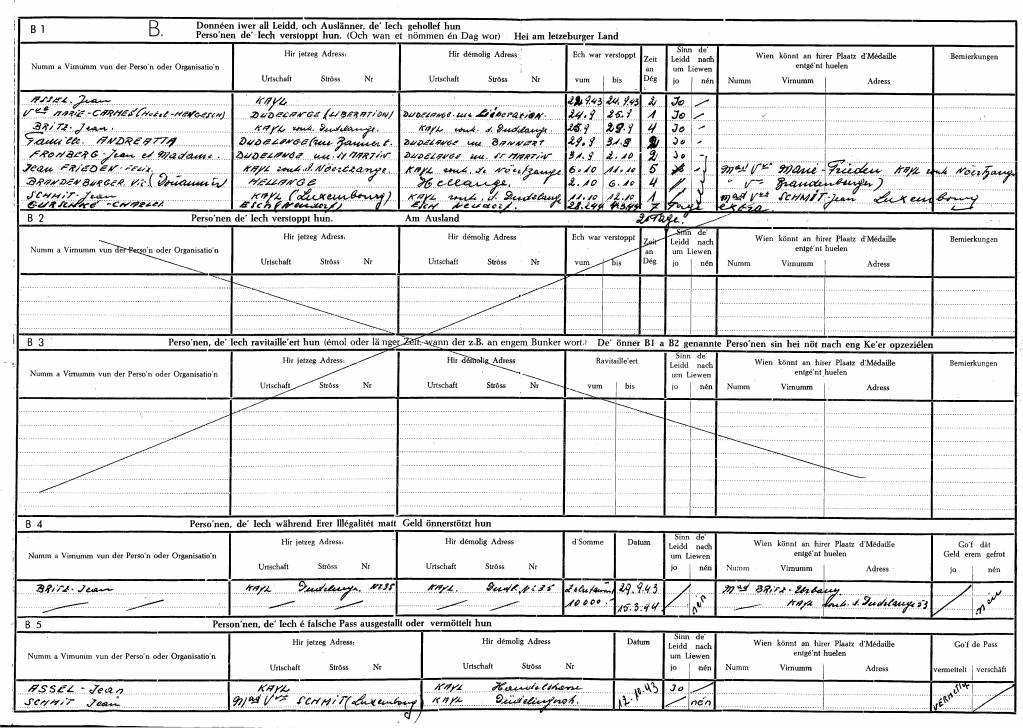 B 1 B. Donnéen iwer all Leidd, och Auslänner, de' Iech gehollef hun
Perso'nen de' Iech verstoppt hun. (Och wan et nömmen én Dag wor) Hei am letzeburger Land
Numm a Virnumm vun der Perso'n oder Organisatio'n
Hir jetzeg Adress: Urtschaft Ströss Nr
Hir démolig Adress: Urtschaft Ströss Nr
Ech war verstoppt vum bis
Zeit an Dég
Sinn de' Leidd nach um Liewen jo nén
Wien könnt an hirer Plaatz d'Médaille entgé'nt huelen Numm Virnumm Adress
Bemierkungen
ASSEL Jean KAYL 22.9.43 24.9.43 2 Jo
Vve MARIE-CARMES (Hotel-) DUDELANGE (LIBERATION) DUDELANGE rue LIBERATION 24.9 25.9 1 Jo
BRITZ-Jean. KAYL rout. Dudelange. KAYL rout. d. Dudelange 25.9 29.9 4 Jo
Famille ANDREATTA DUDELANGE (rue Bannert. DUDELANGE rue BANNERT 29.9 31.9 2 Jo
FROMBERG-Jean et Madame. DUDELANGE rue. ST MARTIN DUDELANGE rue ST MARTIN 31.9 2.10 2 Jo
JEAN FRIEDEN-FELIX KAYL rout d. Noertzange. KAYL rout d. Noertzange 6.10 11.10 5 Mad Vve Marie-Frieden KAYL route Noertzange
BRANDENBURGER Vic (Douannier HELLANGE Hellange. 2.10 6.10 4 Vve Brandenburger)
SCHMIT-Jean KAYL (Luxembourg) KAYL rout. d. Dudelang 11.10 12.10 1 Mad Vve SCHMIT-Jean Luxembourg
ESCH ESCH 7 Tage extra
20 Tage.
B 2 Perso'nen de' Iech verstoppt hun. Am Ausland
Numm a Virnumm vun der Perso'n oder Organisatio'n
Hir jetzeg Adress: Urtschaft Ströss Nr
Hir démolig Adress: Urtschaft Ströss Nr
Ech war verstoppt vum bis
Zeit an Dég
Sinn de' Leidd nach um Liewen jo nén
Wien könnt an hirer Plaatz d'Médaille entgé'nt huelen Numm Virnumm Adress
Bemierkungen
B 3 Perso'nen, de' Iech ravitaille'ert hun (émol oder lä nger Zeit, wann der z.B. an engem Bunker wort.) De' önner B1 a B2 genannte Perso'nen sin hei nöt nach eng Ke'er opzeziélen
Numm a Virnumm vun der Perso'n oder Organisatio'n
Hir jetzeg Adress: Urtschaft Ströss Nr
Hir démolig Adress: Urtschaft Ströss Nr
Ravitaille'ert vum bis
Sinn de' Leidd nach um Liewen jo nén
Wien könnt an hirer Plaatz d'Médaille entgé'nt huelen Numm Virnumm Adress
Bemierkungen
B 4 Perso'nen, de' Iech während Erer Illégalitét matt Geld önnerstötzt hun
Numm a Virnumm vun der Perso'n oder Organisatio'n
Hir jetzeg Adress: Urtschaft Ströss Nr
Hir démolig Adress Urtschaft Ströss Nr
d'Somme
Datum
Sinn de' Leidd nach um Liewen jo nén
Wien könnt an hirer Plaatz d'Médaille entgé'nt huelen Numm Virnumm Adress
Go'f dät Geld erem gefrot jo nén
BRITZ-Jean KAYL Dudelange. No 35 KAYL. Dudl. No 35 29.9.43 Mad BRITZ-Urbany
10000.- 15.3.44 nén KAYL rout. d. Dudelange 53 nén
B 5 Person'nen, de' Iech é falsche Pass ausgestallt oder vermöttelt hun
Numm a Virnumm vun der Perso'n oder Organisatio'n
Hir jetzeg Adress: Urtschaft Ströss Nr
Hir démolig Adress: Urtschaft Ströss Nr
Datum
Sinn de' Leidd nach um Liewen jo nén
Wien könnt an hirer Plaatz d'Médaille entgé'nt huelen Numm Virnumm Adress
Go'f de Pass vermettelt verschäft
ASSEL-Jean KAYL KAYL 12.10.43 Jo
SCHMIT Jean Mad Vve SCHMIT (Luxembourg) KAYL nén